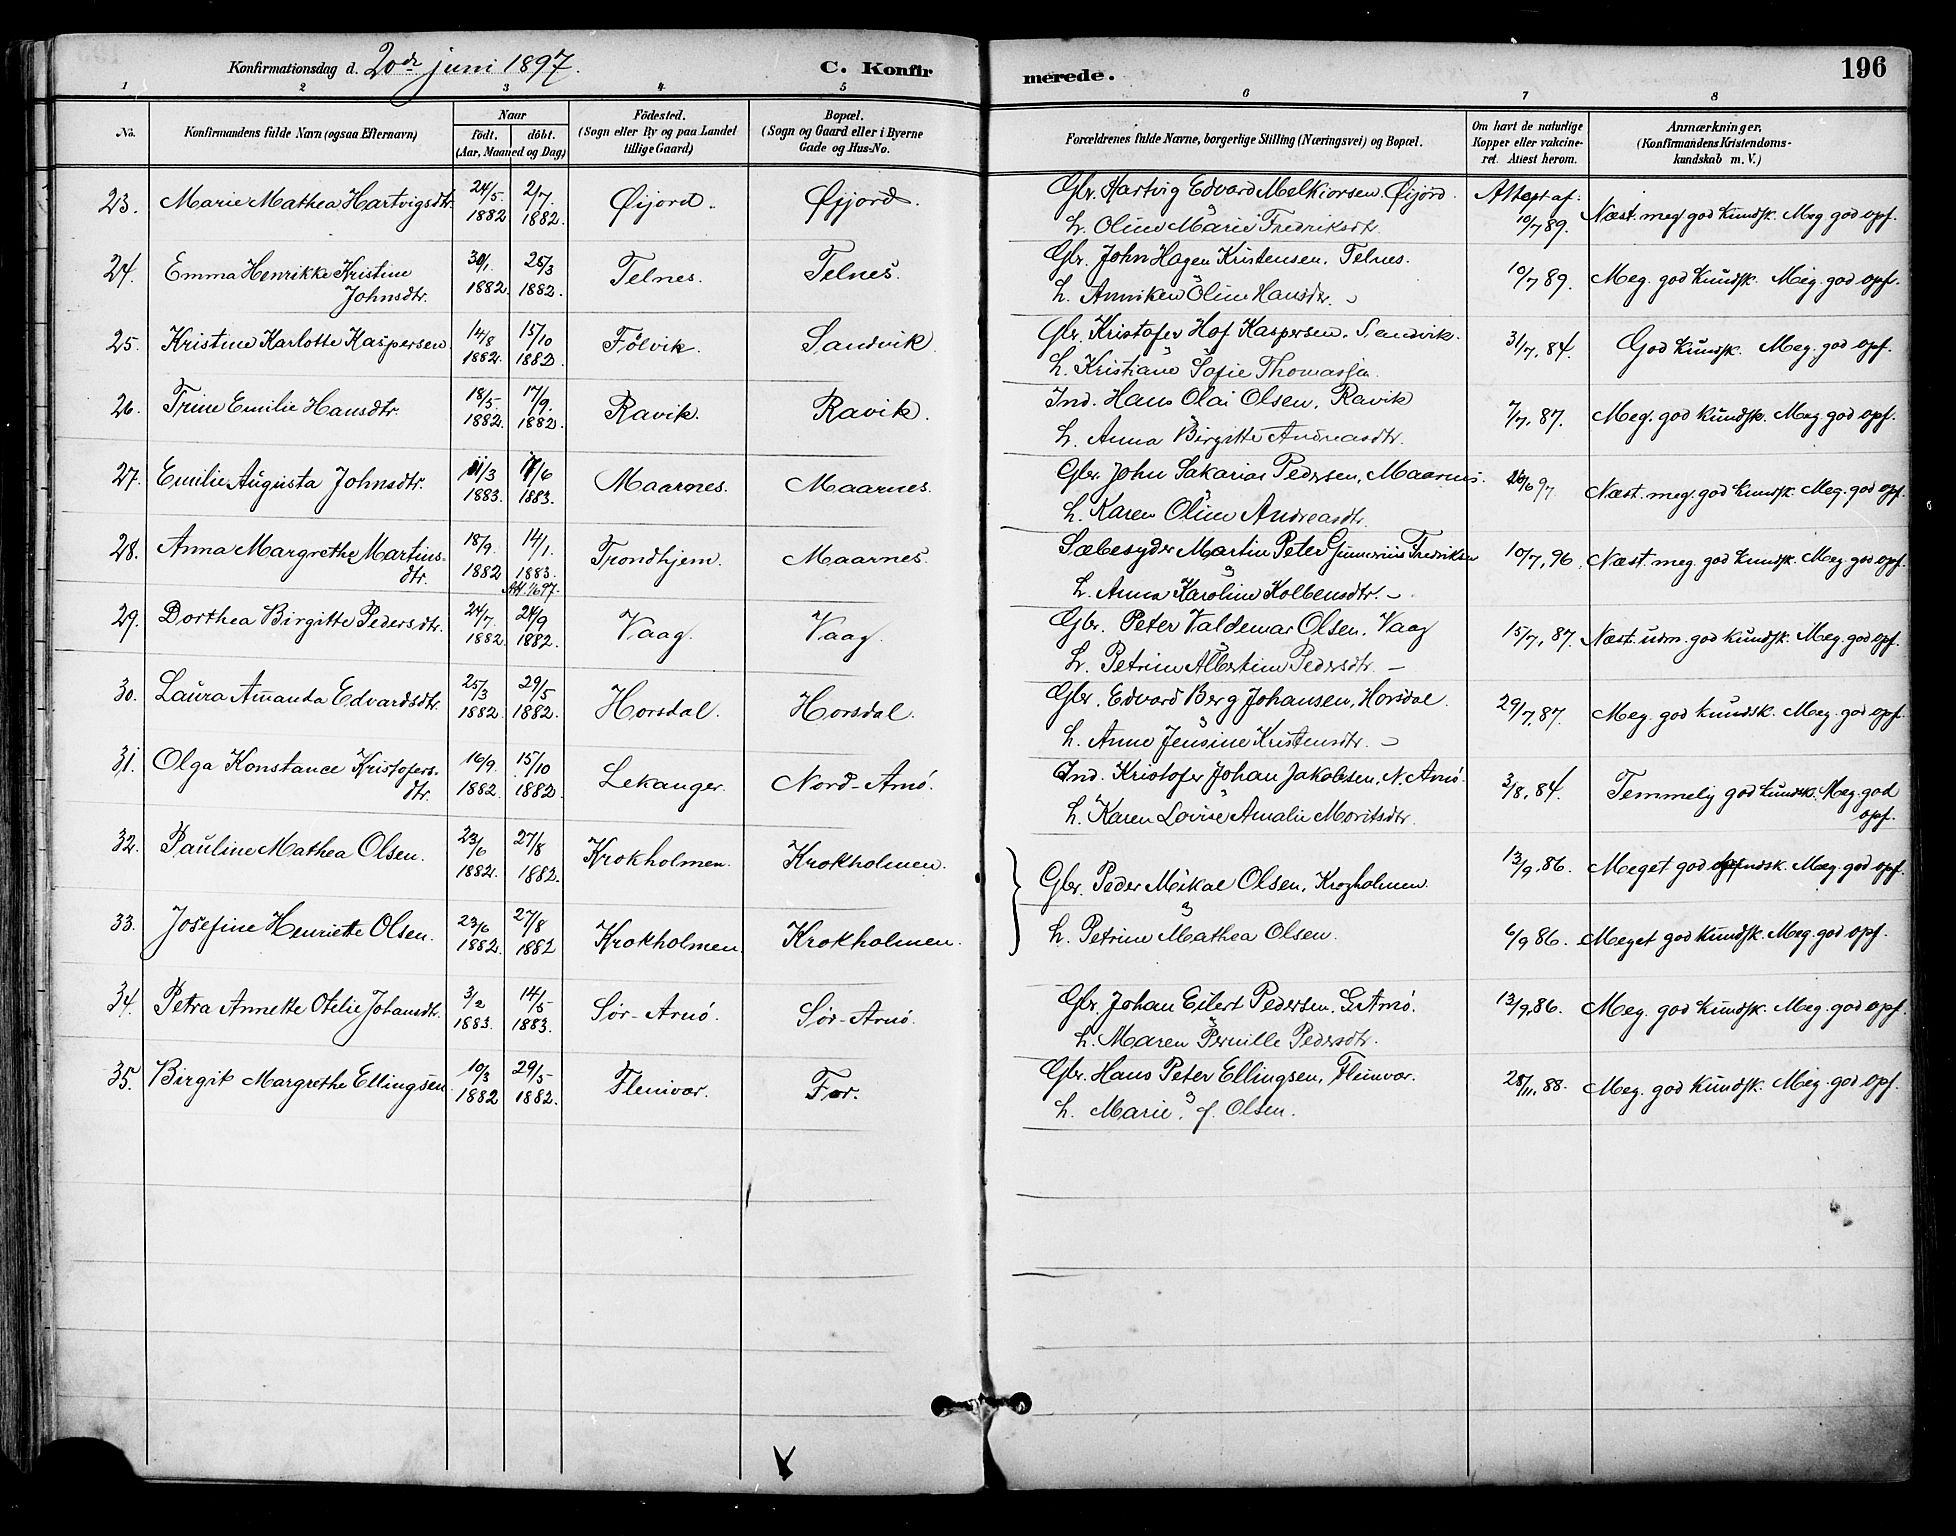 Konfirmationsdag d. 20de juni 1897. C. Konfir merede. 196
1 2 3 4 5 6 7 8
No. Konfirmandens fulde Navn (ogsaa Efternavn) Naar födt, döbt. (Aar, Maaned og Dag) Födested. (Sogn eller By og paa Landet tillige Gaard) Bopæl. (Sogn og Gaard eller i Byerne Gade og Hus-No. Forældrenes fulde Navne, borgerlige Stilling (Næringsvei) og Bopæl. Om havt de naturlige Kopper eller vakcineret. Attest herom. Anmærkninger. (Konfirmandens Kristendomskundskab m. V.)
23. Marie Mathea Hartvigsdtr. 24/5 1882 2/7 1882. Øijord. Øijord. Gbr. Hartvig Edvard Melkiorsen. Øijord Attest af: 10/7 89. Næst. meg. god kundsk. Meg. god opf.
h. Oline Marie Fredriksdtr.
24. Emma Henrikke Kristine Johnsdtr. 30/1. 1882. 25/3 1882. Telnes. Telnes. Gbr. John Hagen Kristensen. Telnes. 10/7 89. Meg. god kundsk. Meg. god opf.
h. Anniken Oline Hansdtr.
25. Kristine Karlotte Kaspersen 14/8 1882. 15/10 1882. Følvik. Sandvik. Gbr. Kristofer Hof Kaspersen. Sandvik. 31/7, 84. God kundsk. Meg. god opf.
h. Kristiane Sofie Thomasja.
26. Trine Emilie Hansdtr. 18/5 1882. 17/9. 1882. Ravik. Ravik. Ind. Hans Olai Olsen, Ravik 7/7, 87. Meg. god kundsk. Meg. god opf.
h. Anna Birgitte Andreasdtr.
27. Emilie Augusta Johnsdtr. 11/3 1883. /6 1883. Maarnes. Maarnes. Gbr. John Sakarias Pedersen, Maarnes. /6 97. Næst. meg. god kundsk. Meg. god opf.
h. Karen Oline Andreasdtr.
28. Anna Margrethe Martinsdtr. 18/9. 1882 14/1. 1883. Trondhjem. Maarnes. Sæbesyder Martin Peter Gunnerius Fredriksen 10/7, 96. Næst. meg. god kundsk. Meg. god opf.
h. Anna Karoline Kolbensdtr. –
29. Dorthea Birgitte Pedersdtr. 24/7 1882. 24/9 1882. Vaag. Vaag. Gbr. Peter Valdemar Olsen, Vaag 15/7, 87. Næst. udm. god kundsk. Meg. god opf.
h. Petrine Albertine Pedersdtr. –
30. Laura Amanda Edvardsdtr. 25/3 1882. 29/5 1882. Horsdal. Horsdal. Gbr. Edvard Berg Johansen, Horsdal. 29/7, 87. Meg. god kundsk. Meg. god opf.
h. Anne Jensine Kristensdtr. –
31. Olga Konstance Kristofersdtr. 16/9. 1882. 15/10 1882. Lekanger. Nord-Arnö. Ind. Kristofer Johan Jakobsen, N. Arnö. 3/8, 84. Temmelig god kundsk. Meg. god opf.
h. Karen Lovise Amalie Moritsdtr.
32. Pauline Mathea Olsen. 23/6 1882. 27/8 1882. Krokholmen. Krokholmen. Gbr. Peder Mikal Olsen, Krogholmen. 13/9, 86. Meget god kundsk. Meg. god opf.
33. Josefine Henriette Olsen. 23/6 1882. 27/8 1882 Krokholmen Krokholmen. h. Petrine Mathea Olsen. 6/9 86. Meget god kundsk. Meg. god opf.
34. Petra Annette Otelie Johansdtr. 3/2 1883. 14/5 1883. Sör-Arnö. Sör-Arnö. Gbr. Johan Eilert Pedersen, S. Arnö. 13/9, 86. Meg. god kundsk. Meg. god opf.
h. Maren Pernille Pedersdtr.
35. Birgit Margrethe Ellingsen 10/3 1882 29/5 1882. Fleinvær. Før. Gbr. Hans Peter Ellingsen, Fleinvær. 28/11, 88. Meg. god kundsk. Meg. god opf.
h. Marie, f. Olsen.